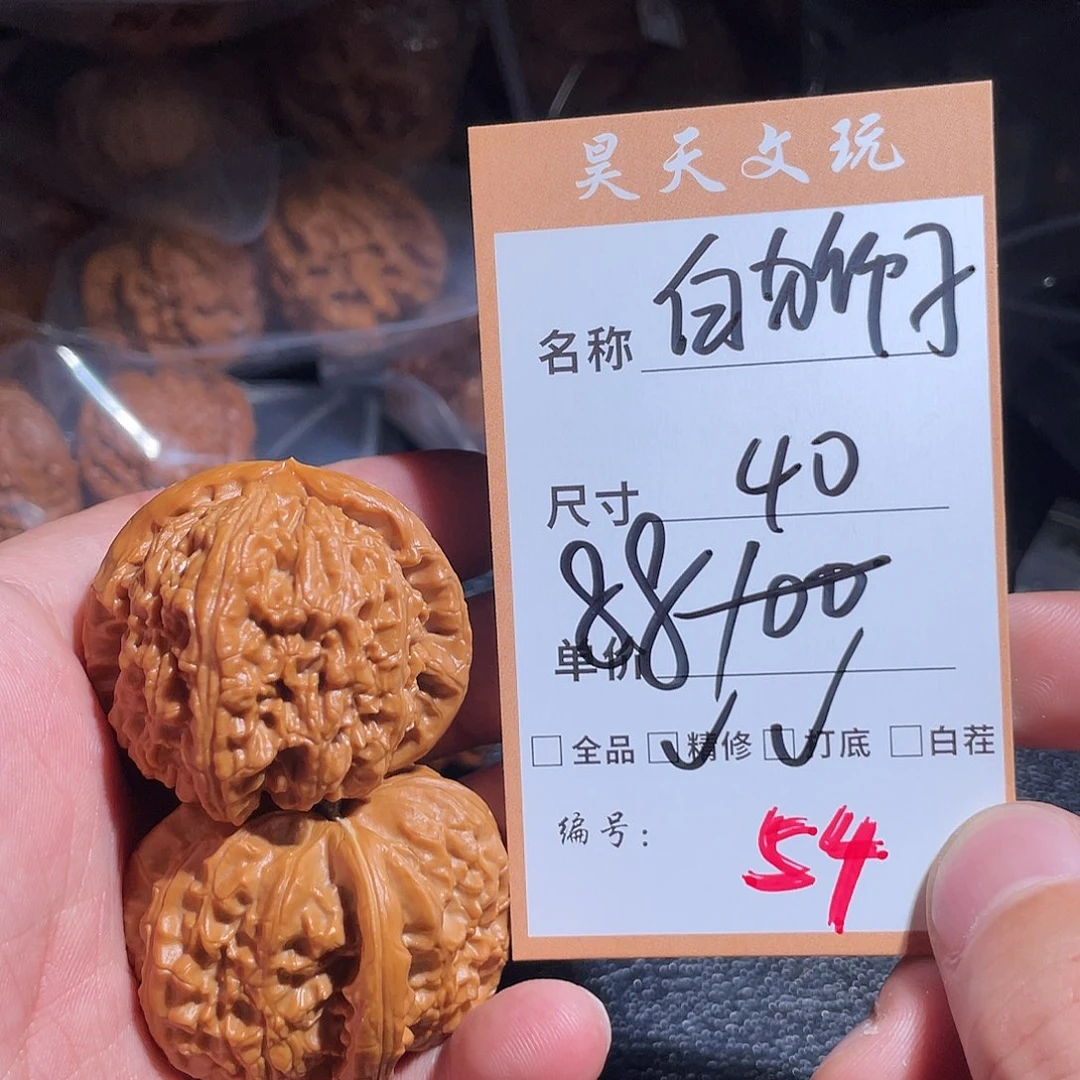 昊天文玩
名称 白方狮子
尺寸 40
单价 88 100
□ 全品 ☑ 精修 ☑ 打底 □ 白茬
编号： 54